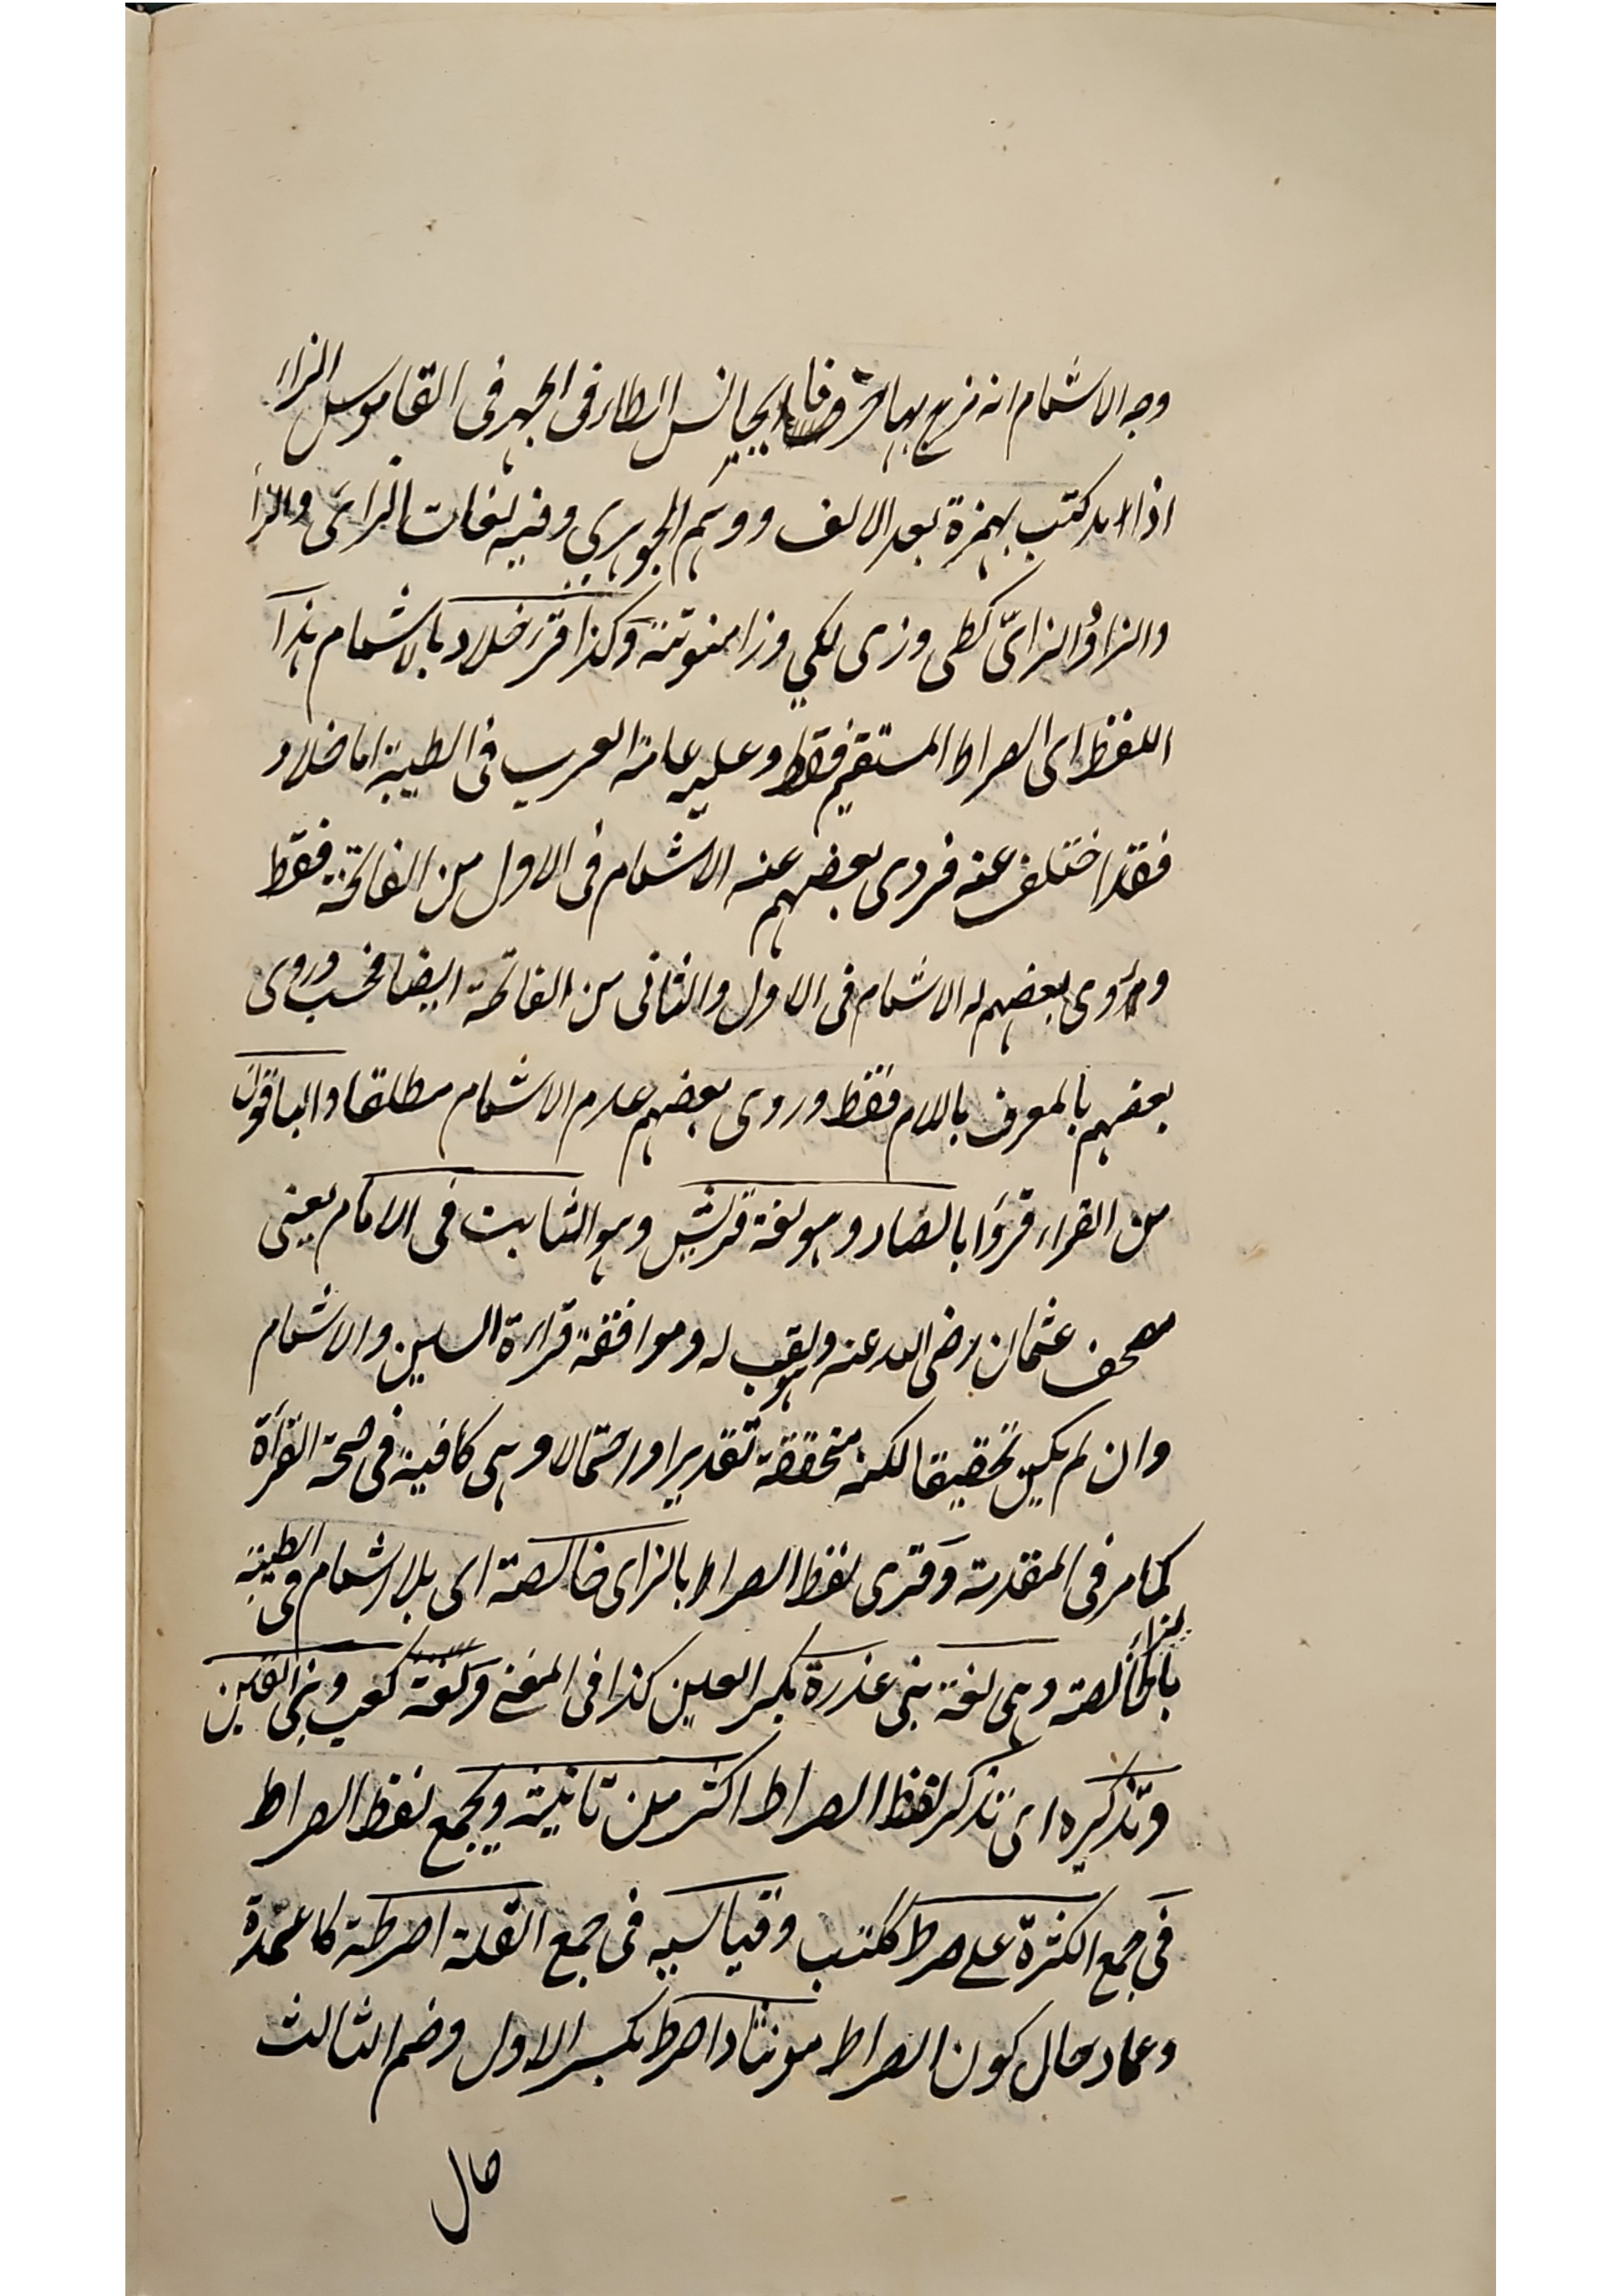 وجه الاشمام انه مزج بها حرفا ليجانس الطاء فى الجهر فى القاموس الزاء
اذا مد كتب بهمزة بعد الالف ووهم الجوهري وفيه لغات الزاى والزا
والزاؤ الزاىّ كطى وزى لكي وزا منوتنة وكذا قرء خلاد بالاشمام هذا
اللفظ اى الصراط المستقيم فقط وعليه عامة العرب فى الطيبة اما خلاد
فقد اختلف عنه فروى بعضهم عنه الاشمام فى الاول من الفاتحة فقط
وروى بعضهم له الاشمام فى الاول والثانى من الفاتحة ايضا فحسب وروى
بعضهم بالمعرف باللام فقط وروى بعضهم عدم الاشمام مطلقا والباقون
من القراء قرؤا بالصاد وهو لغة قريش وهو الثابت فى الامام يعنى
مصحف عثمان رضى الله عنه ولقب له وموافقة قراءة السين والاشمام
وان لم يكن تحقيقا لكنه متحققة تقديرا واحتمالا وهى كافية فى صحة القرأة
كما مر فى المقدمة وقرى لفظ الصراط بالزاى خالصة اى بلا اشمام وفى الطيبة
بالزاء خالصة وهى لغة بنى عذرة بكسر العين كذا فى المغنى ولغة كعب وبنى القين
وتذكيره اى تذكر لفظ الصراط اكثر من تانيثه ويجمع لفظ الصراط
فى جمع الكثرة على صرط ككتب وقياسه فى جمع القلة اصرطة كاعمدة
وعماد حال كون الصراط مونثا واصرط بكسر الاول وضم الثالث
حال